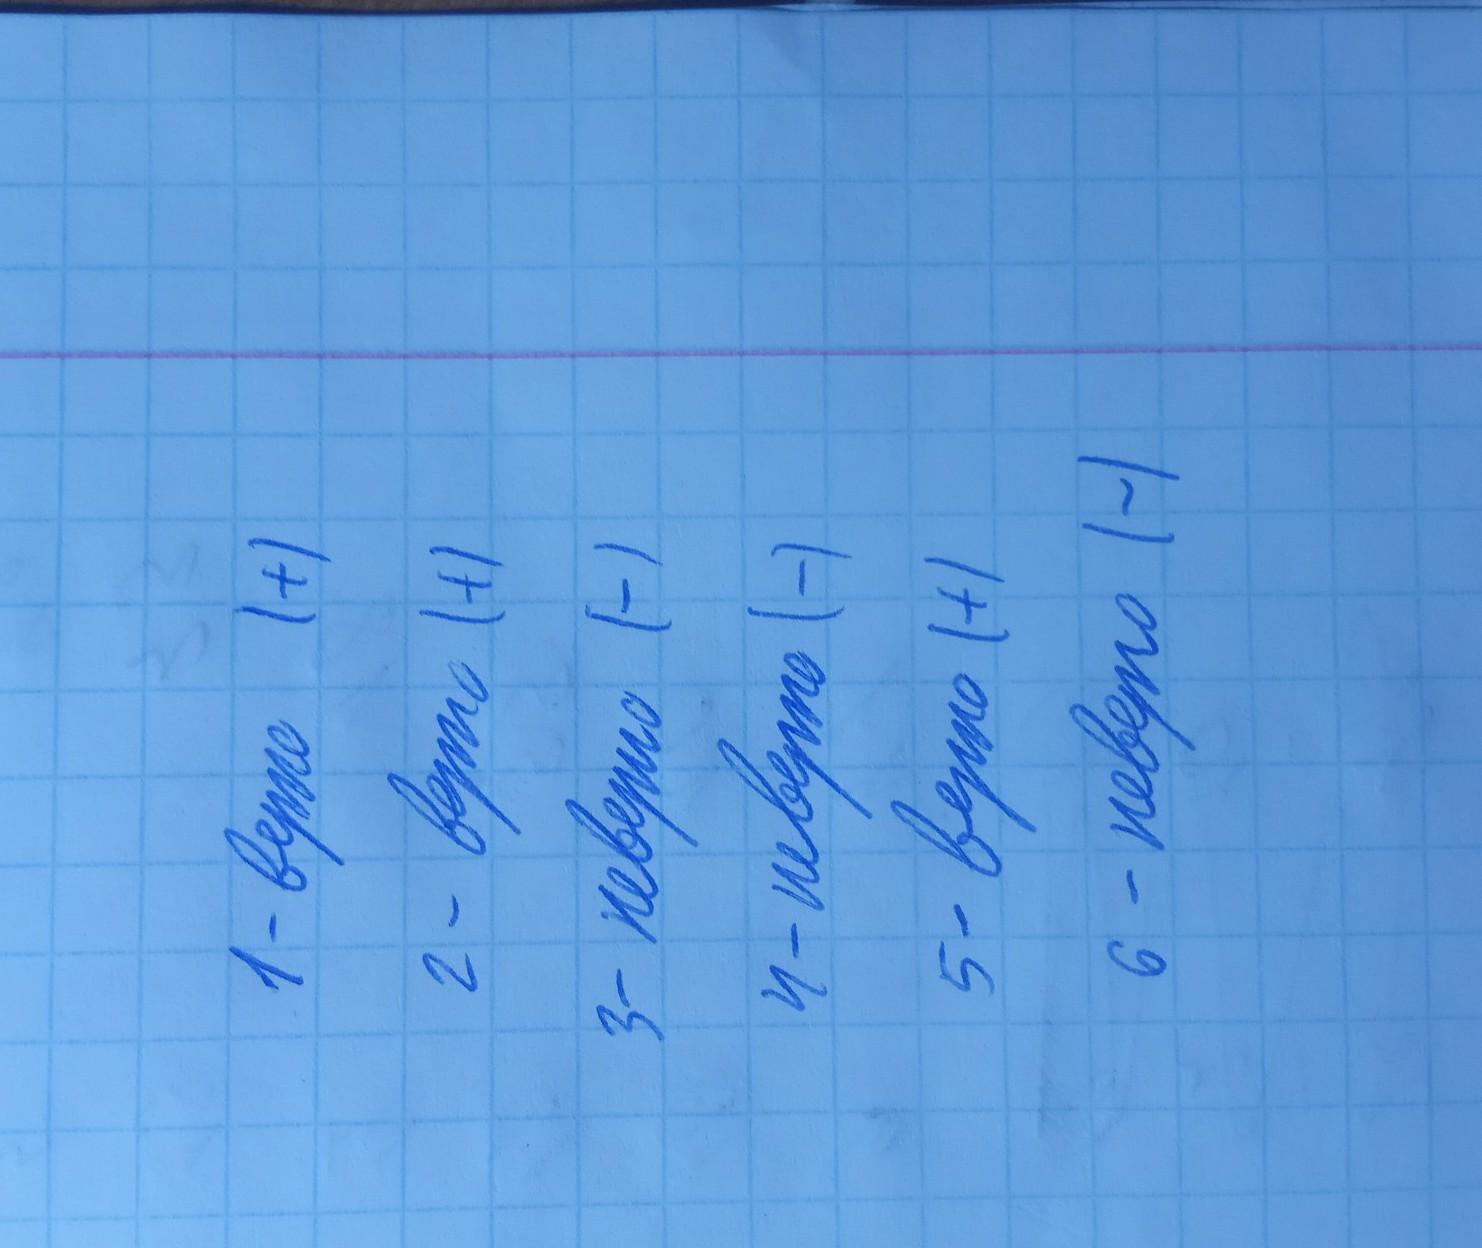 1 - верно (+)
2 - верно (+)
3 - неверно (-)
4 - неверно (-)
5 - верно (+)
6 - неверно (-)